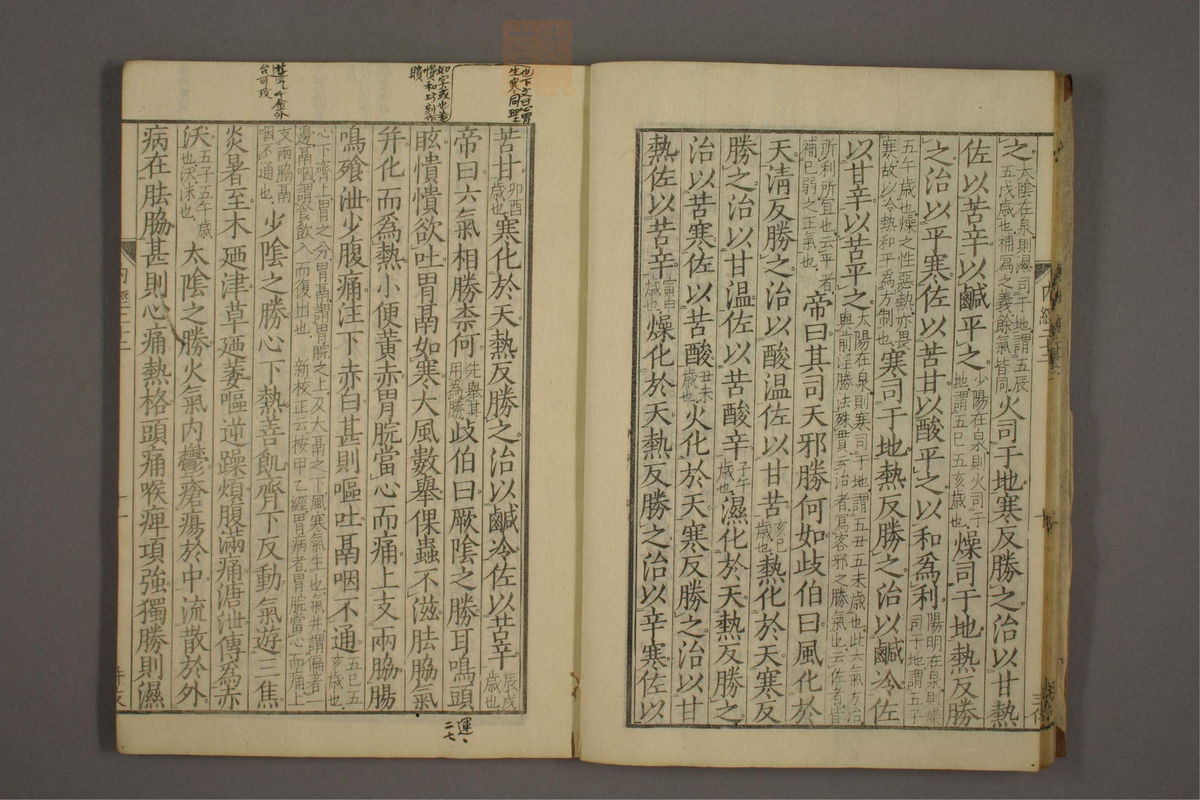 之太陰在泉則濕司于地謂五辰五戌歲也補寫之義餘氣皆同火司于地寒反勝之治以甘熱
佐以苦辛以鹹平之少陽在泉則火司于地謂五巳五亥歲也燥司于地熱反勝
之治以平寒佐以苦甘以酸平之以和為利陽明在泉則燥司于地謂五子
五午歲也燥之性惡熱亦畏寒故以冷熱和平為方制也寒司于地熱反勝之治以鹹冷佐
以甘辛以苦平之太陽在泉則寒司于地謂五丑五未歲也此六氣方治與前淫勝法殊貫云治者寫客邪之勝氣也云佐者皆
所利所宜也云平者補已弱之正氣也帝曰其司天邪勝何如歧伯曰風化於
天清反勝之治以酸溫佐以甘苦亥巳歲也熱化於天寒反
勝之治以甘溫佐以苦酸辛子午歲也濕化於天熱反勝之
治以苦寒佐以苦酸丑未歲也火化於天寒反勝之治以甘
熱佐以苦辛寅申歲也燥化於天熱反勝之治以辛寒佐以
苦甘卯酉歲也寒化於天熱反勝之治以鹹冷佐以苦辛辰戌歲也
帝曰六氣相勝柰何先舉其用為勝歧伯曰厥陰之勝耳鳴頭
眩憒憒欲吐胃鬲如寒大風數舉倮蟲不滋胠脇氣
并化而為熱小便黃赤胃脘當心而痛上支兩脇腸
鳴飧泄少腹痛注下赤白甚則嘔吐鬲咽不通五巳五亥歲也
心下齊上胃之分胃鬲謂胃脘之上及大鬲之下風寒氣生也氣并謂偏著一
邊鬲咽謂食飲入而復出也新校正云按甲乙經胃病者胃脘當心而痛上
支兩脇鬲咽不通也少陰之勝心下熱善飢齊下反動氣遊三焦
炎暑至木廼津草廼萎嘔逆躁煩腹滿痛溏泄傳為赤
沃五子五午歲也沃沫也太陰之勝火氣內鬱瘡瘍於中流散於外
病在胠脇甚則心痛熱格頭痛喉痺項強獨勝則濕
運
二七